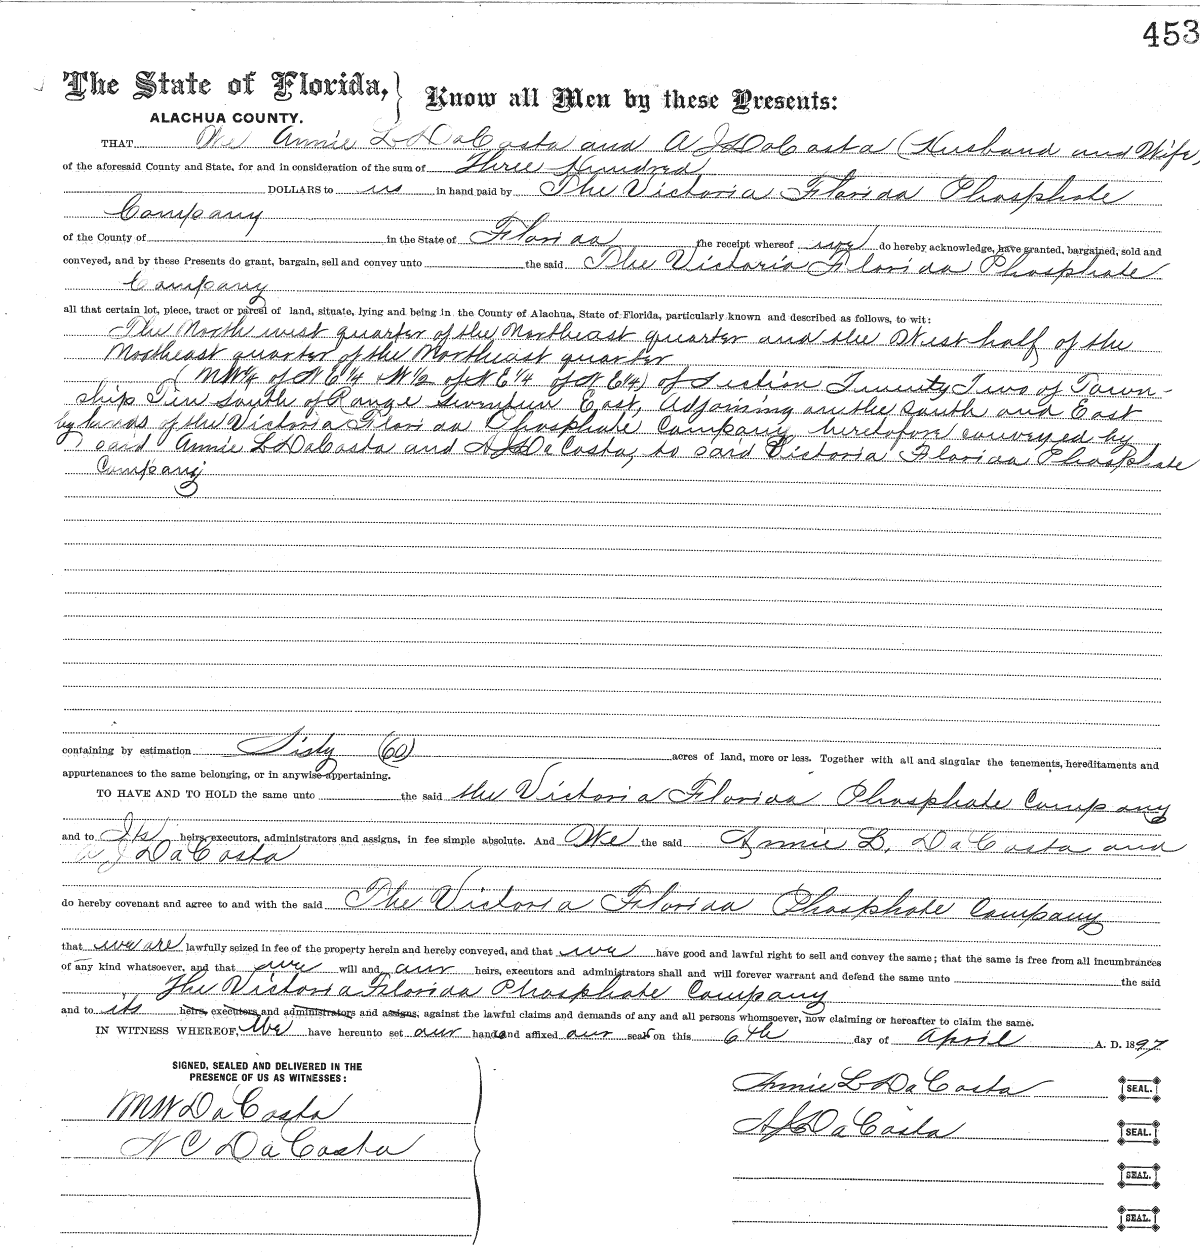 453
The State of Florida, } Know all Men by these Presents:
ALACHUA COUNTY.
THAT We Annie L DaCosta and A J DaCosta (Husband and Wife)
of the aforesaid County and State, for and in consideration of the sum of Three Hundred
DOLLARS to us in hand paid by The Victoria Florida Phosphate
Company
of the County of in the State of Florida the receipt whereof we do hereby acknowledge, have granted, bargained, sold and
conveyed, and by these Presents do grant, bargain, sell and convey unto the said The Victoria Florida Phosphate
Company
all that certain lot, piece, tract or parcel of land, situate, lying and being in the County of Alachua, State of Florida, particularly known and described as follows, to wit:
The North west quarter of the Northeast quarter and the West half of the
Northeast quarter of the Northeast quarter
(NW¼ of NE¼ & W½ of NE¼ of NE¼) of Section Twenty Two of Town-
ship Ten South of Range Seventeen East, Adjoining on the South and East
by lands of the Victoria Florida Phosphate Company heretofore conveyed by
said Annie L DaCosta and A J DaCosta, to said Victoria Florida Phosphate
Company
containing by estimation Sixty (60) acres of land, more or less. Together with all and singular the tenements, hereditaments and
appurtenances to the same belonging, or in anywise appertaining.
TO HAVE AND TO HOLD the same unto the said the Victoria Florida Phosphate Company
and to Its heirs, executors, administrators and assigns, in fee simple absolute. And We the said Annie L. DaCosta and
A J DaCosta
do hereby covenant and agree to and with the said The Victoria Florida Phosphate Company
that we are lawfully seized in fee of the property herein and hereby conveyed, and that we have good and lawful right to sell and convey the same; that the same is free from all incumbrances
of any kind whatsoever, and that we will and our heirs, executors and administrators shall and will forever warrant and defend the same unto the said
The Victoria Florida Phosphate Company
and to its heirs, executors and administrators and assigns, against the lawful claims and demands of any and all persons whomsoever, now claiming or hereafter to claim the same.
IN WITNESS WHEREOF, We have hereunto set our hands and affixed our seals on this 6th day of April A. D. 1897
SIGNED, SEALED AND DELIVERED IN THE
PRESENCE OF US AS WITNESSES:
Annie L DaCosta SEAL.
M W DaCosta
A J DaCosta SEAL.
N C DaCosta
SEAL.
SEAL.